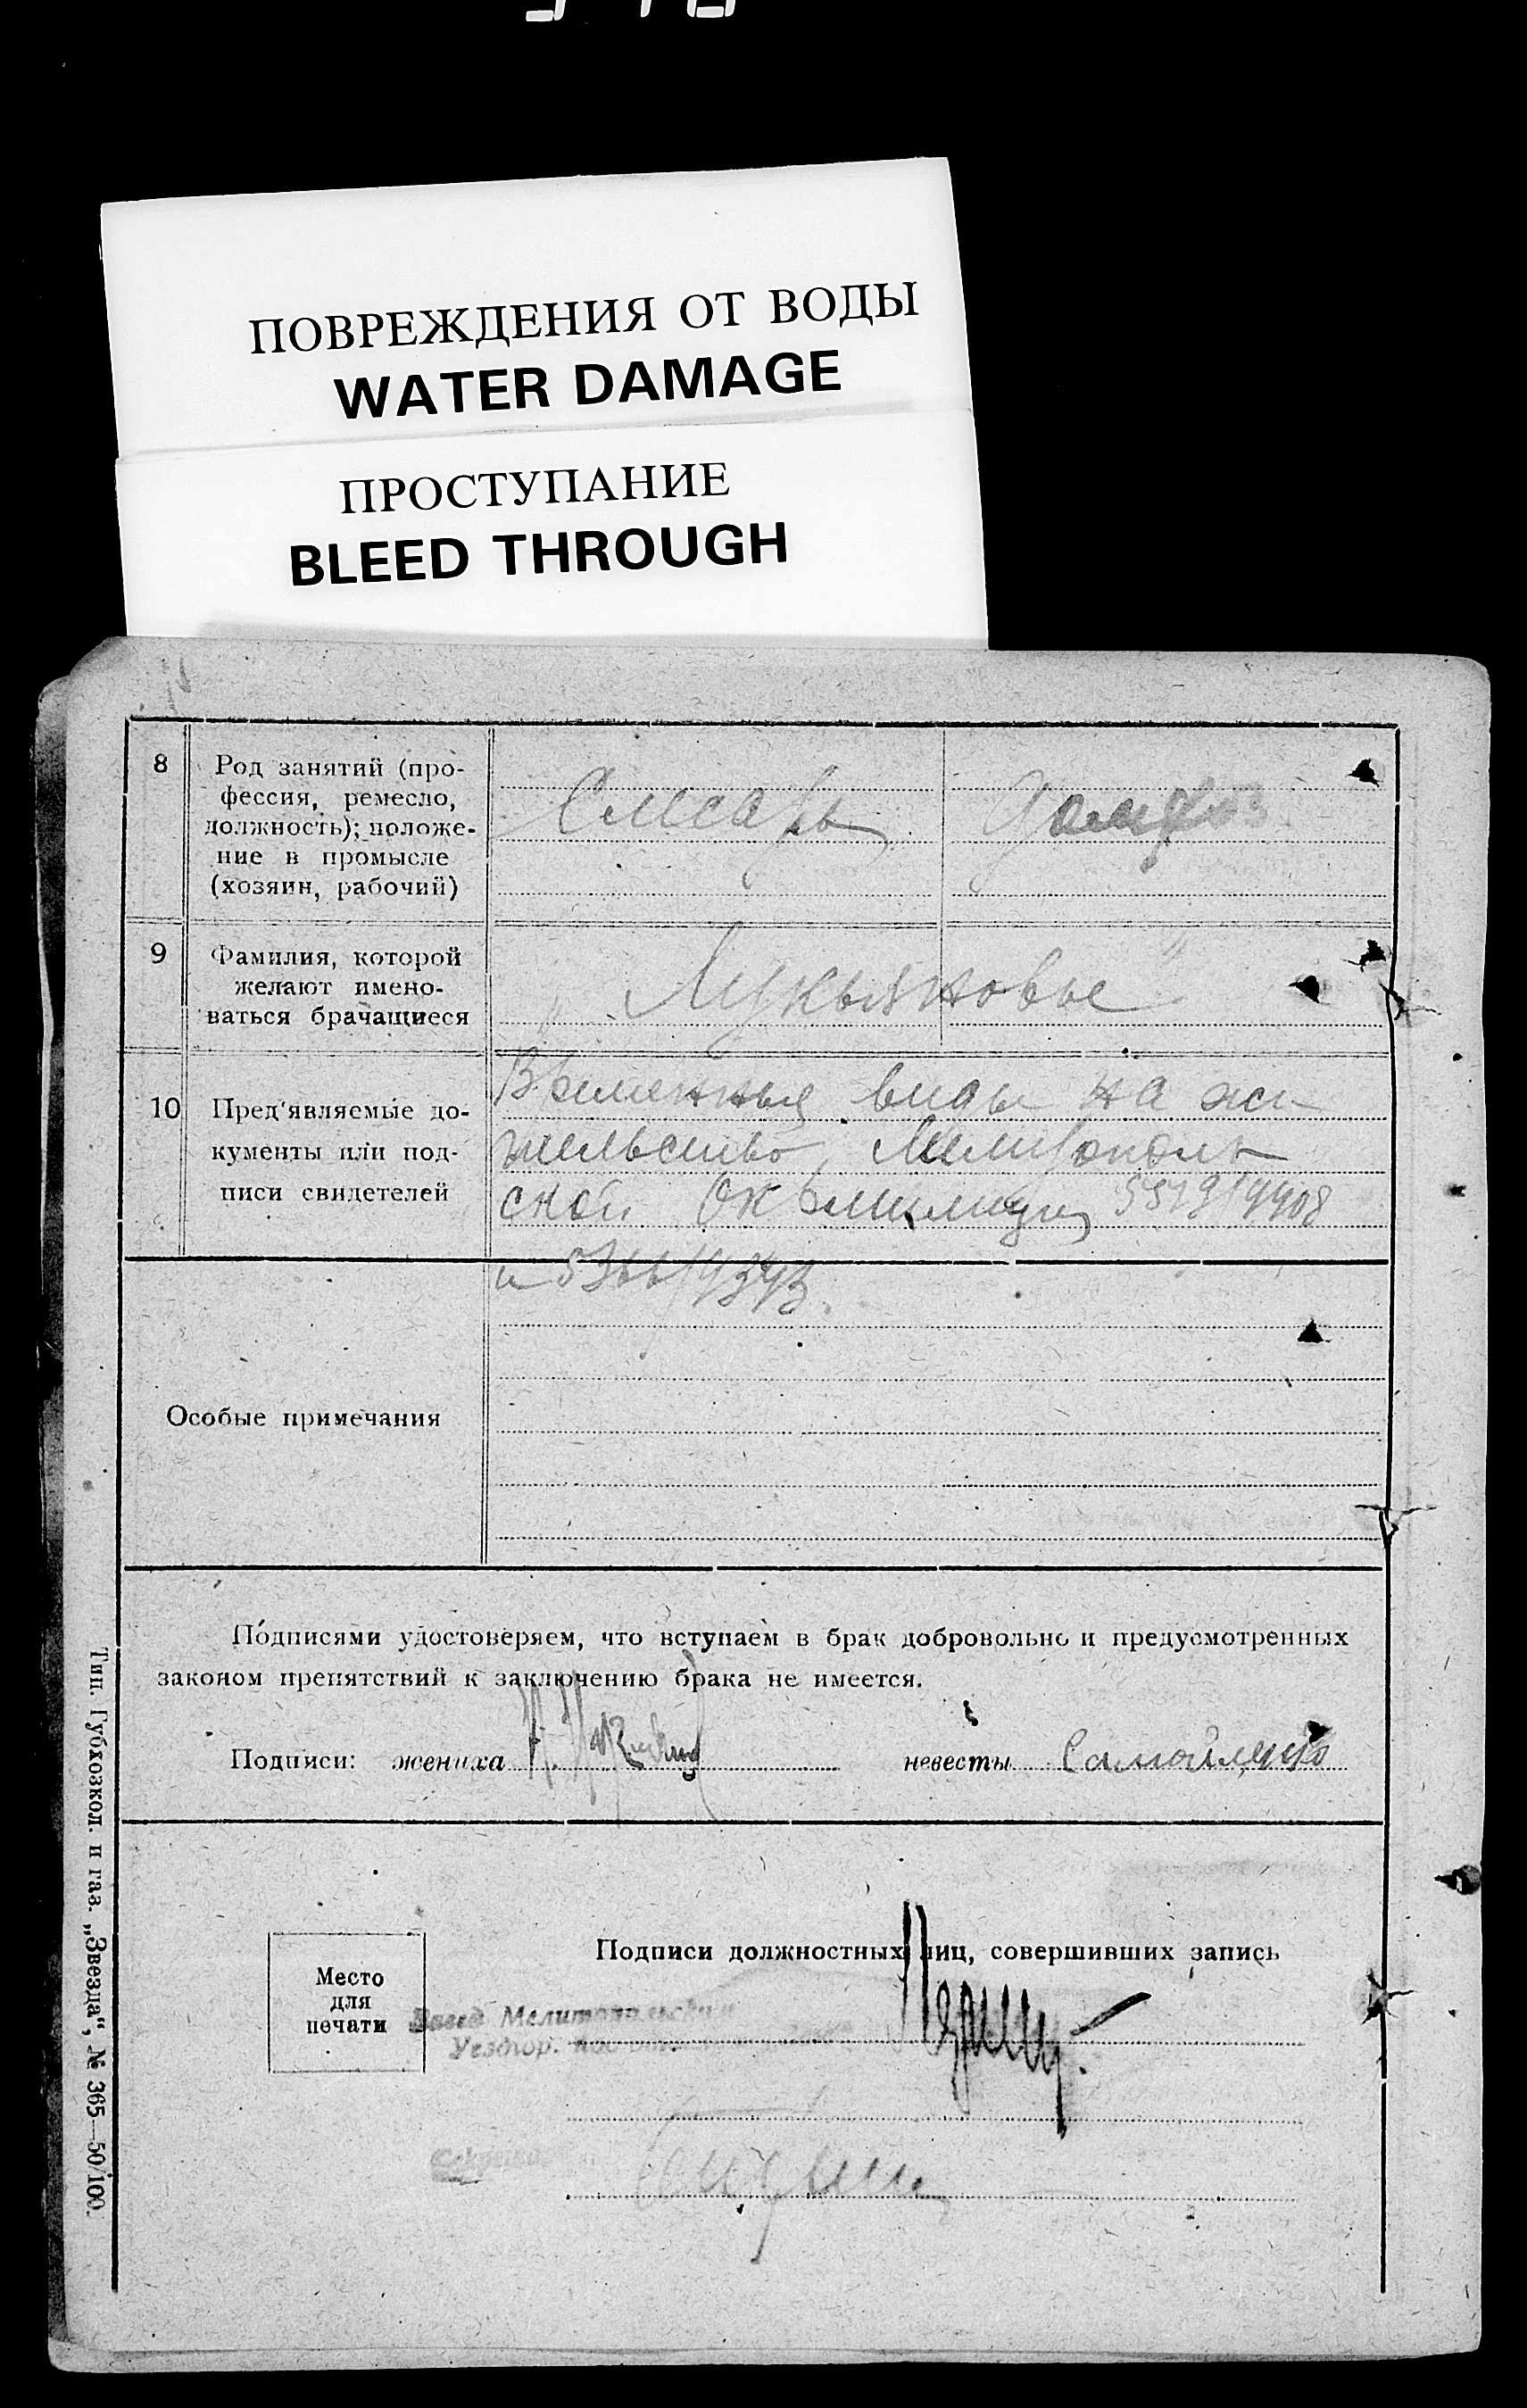 ПОВРЕЖДЕНИЯ ОТ ВОДЫ
WATER DAMAGE
ПРОСТУПАНИЕ
BLEED THROUGH
8
Род занятий (про-
фессия, ремесло,
должность); положе-
ние в промысле
(хозяин, рабочий)
Слесарь
9
Фамилия, которой
желают имено-
ваться брачащиеся
„ Лукьяновые "
10
Пред'являемые до-
кументы или под-
писи свидетелей
Временные виды на жи-
тельство, Мелитополь
ской Окрмилиции
и
Особые примечания
Подписями удостоверяем, что вступаем в брак добровольно и предусмотренных
законом препятствий к заключению брака не имеется.
Подписи: жениха
невесты Самойленко
Место
для
печати
Подписи должностных лиц, совершивших запись
Завед. Мелитопольским
Тип. Губхозкол. и газ. „Звезда", № 365—50/100.